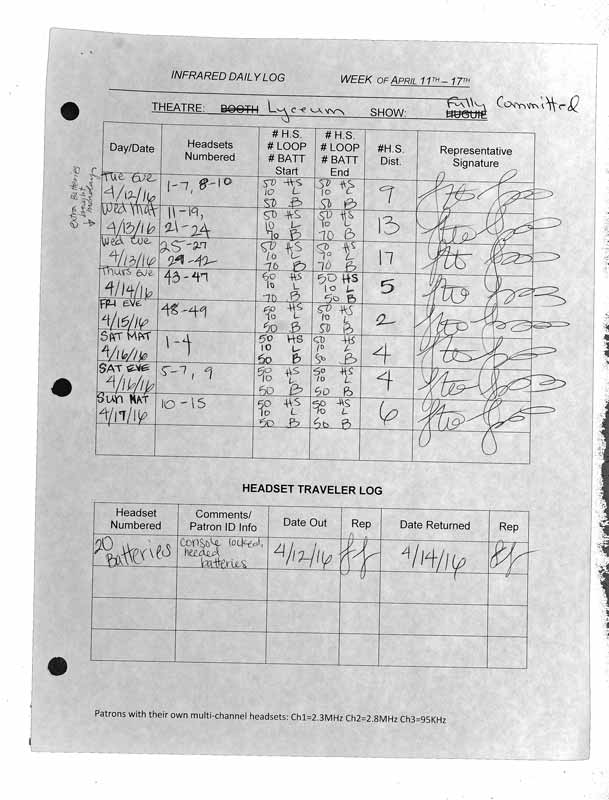 INFRARED DAILY LOG WEEK OF APRIL 11TH – 17TH
THEATRE: BOOTH Lyceum SHOW: HUGHIE Fully Committed
Extra Batteries brought Wednesday
Day/Date Headsets Numbered # H.S. # LOOP # BATT Start # H.S. # LOOP # BATT End #H.S. Dist. Representative Signature
Tue Eve 4/12/16 1-7, 8-10 50 HS 10 L 50 B 50 HS 10 L 50 B 9
Wed Mat 4/13/16 11-19, 21-24 50 HS 10 L 70 B 50 HS 10 L 70 B 13
Wed Eve 4/13/16 25-27 29-42 50 HS 10 L 70 B 50 HS 10 L 70 B 17
Thurs Eve 4/14/16 43-47 50 HS 10 L 70 B 50 HS 10 L 50 B 5
FRI EVE 4/15/16 48-49 50 HS 10 L 50 B 50 HS 10 L 50 B 2
SAT MAT 4/16/16 1-4 50 HS 10 L 50 B 50 HS 10 L 50 B 4
SAT EVE 4/16/16 5-7, 9 50 HS 10 L 50 B 50 HS 10 L 50 B 4
Sun MAT 4/17/16 10-15 50 HS 10 L 50 B 50 HS 10 L 50 B 6
HEADSET TRAVELER LOG
Headset Numbered Comments/ Patron ID Info Date Out Rep Date Returned Rep
20 Batteries console locked, needed batteries 4/12/16 4/14/16
Patrons with their own multi-channel headsets: Ch1=2.3MHz Ch2=2.8MHz Ch3=95KHz